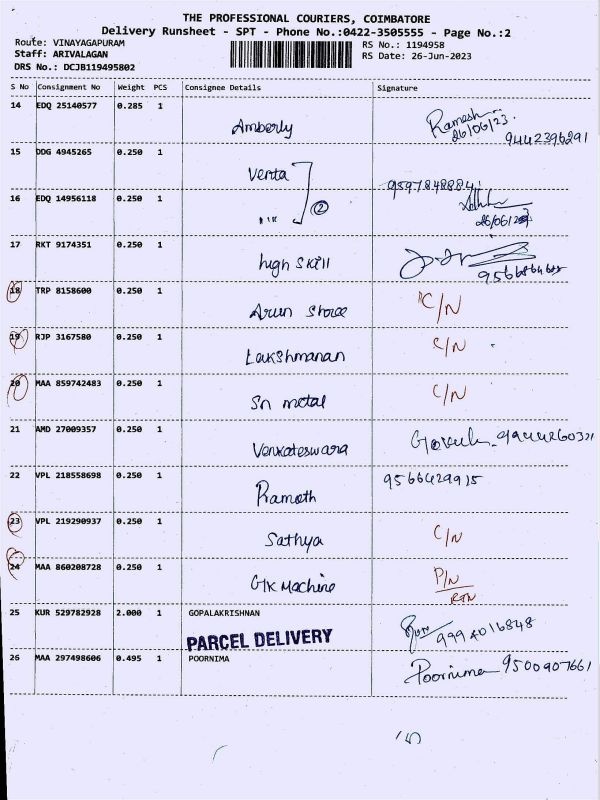 THE PROFESSIONAL COURIERS, COIMBATORE
Delivery Runsheet - SPT - Phone No.:0422-3505555 - Page No.:2
Route: VINAYAGAPURAM
RS No.: 1194958
Staff: ARIVALAGAN
RS Date: 26-Jun-2023
DRS No.: DCJB119495802
S No Consignment No Weight PCS Consignee Details Signature
14 EDQ 25140577 0.285 1 Amberly Ramesh 26/06/23 9442396291
15 DDG 4945265 0.250 1 Venta 9597848884
16 EDQ 14956118 0.250 1 " 2 26/06/23
17 RKT 9174351 0.250 1 high skill
18 TRP 8158600 0.250 1 Arun Store C/N
19 RJP 3167580 0.250 1 Lakshmanan C/N
20 MAA 859742483 0.250 1 Sn metal C/N
21 AMD 27009357 0.250 1 Venkateswara
22 VPL 218558698 0.250 1 Pramoth 9566429915
23 VPL 219290937 0.250 1 Sathya C/N
24 MAA 860208728 0.250 1 GTK Machine P/N RTN
25 KUR 529782928 2.000 1 GOPALAKRISHNAN 9994016848
PARCEL DELIVERY
26 MAA 297498606 0.495 1 POORNIMA Poornima 9500907661